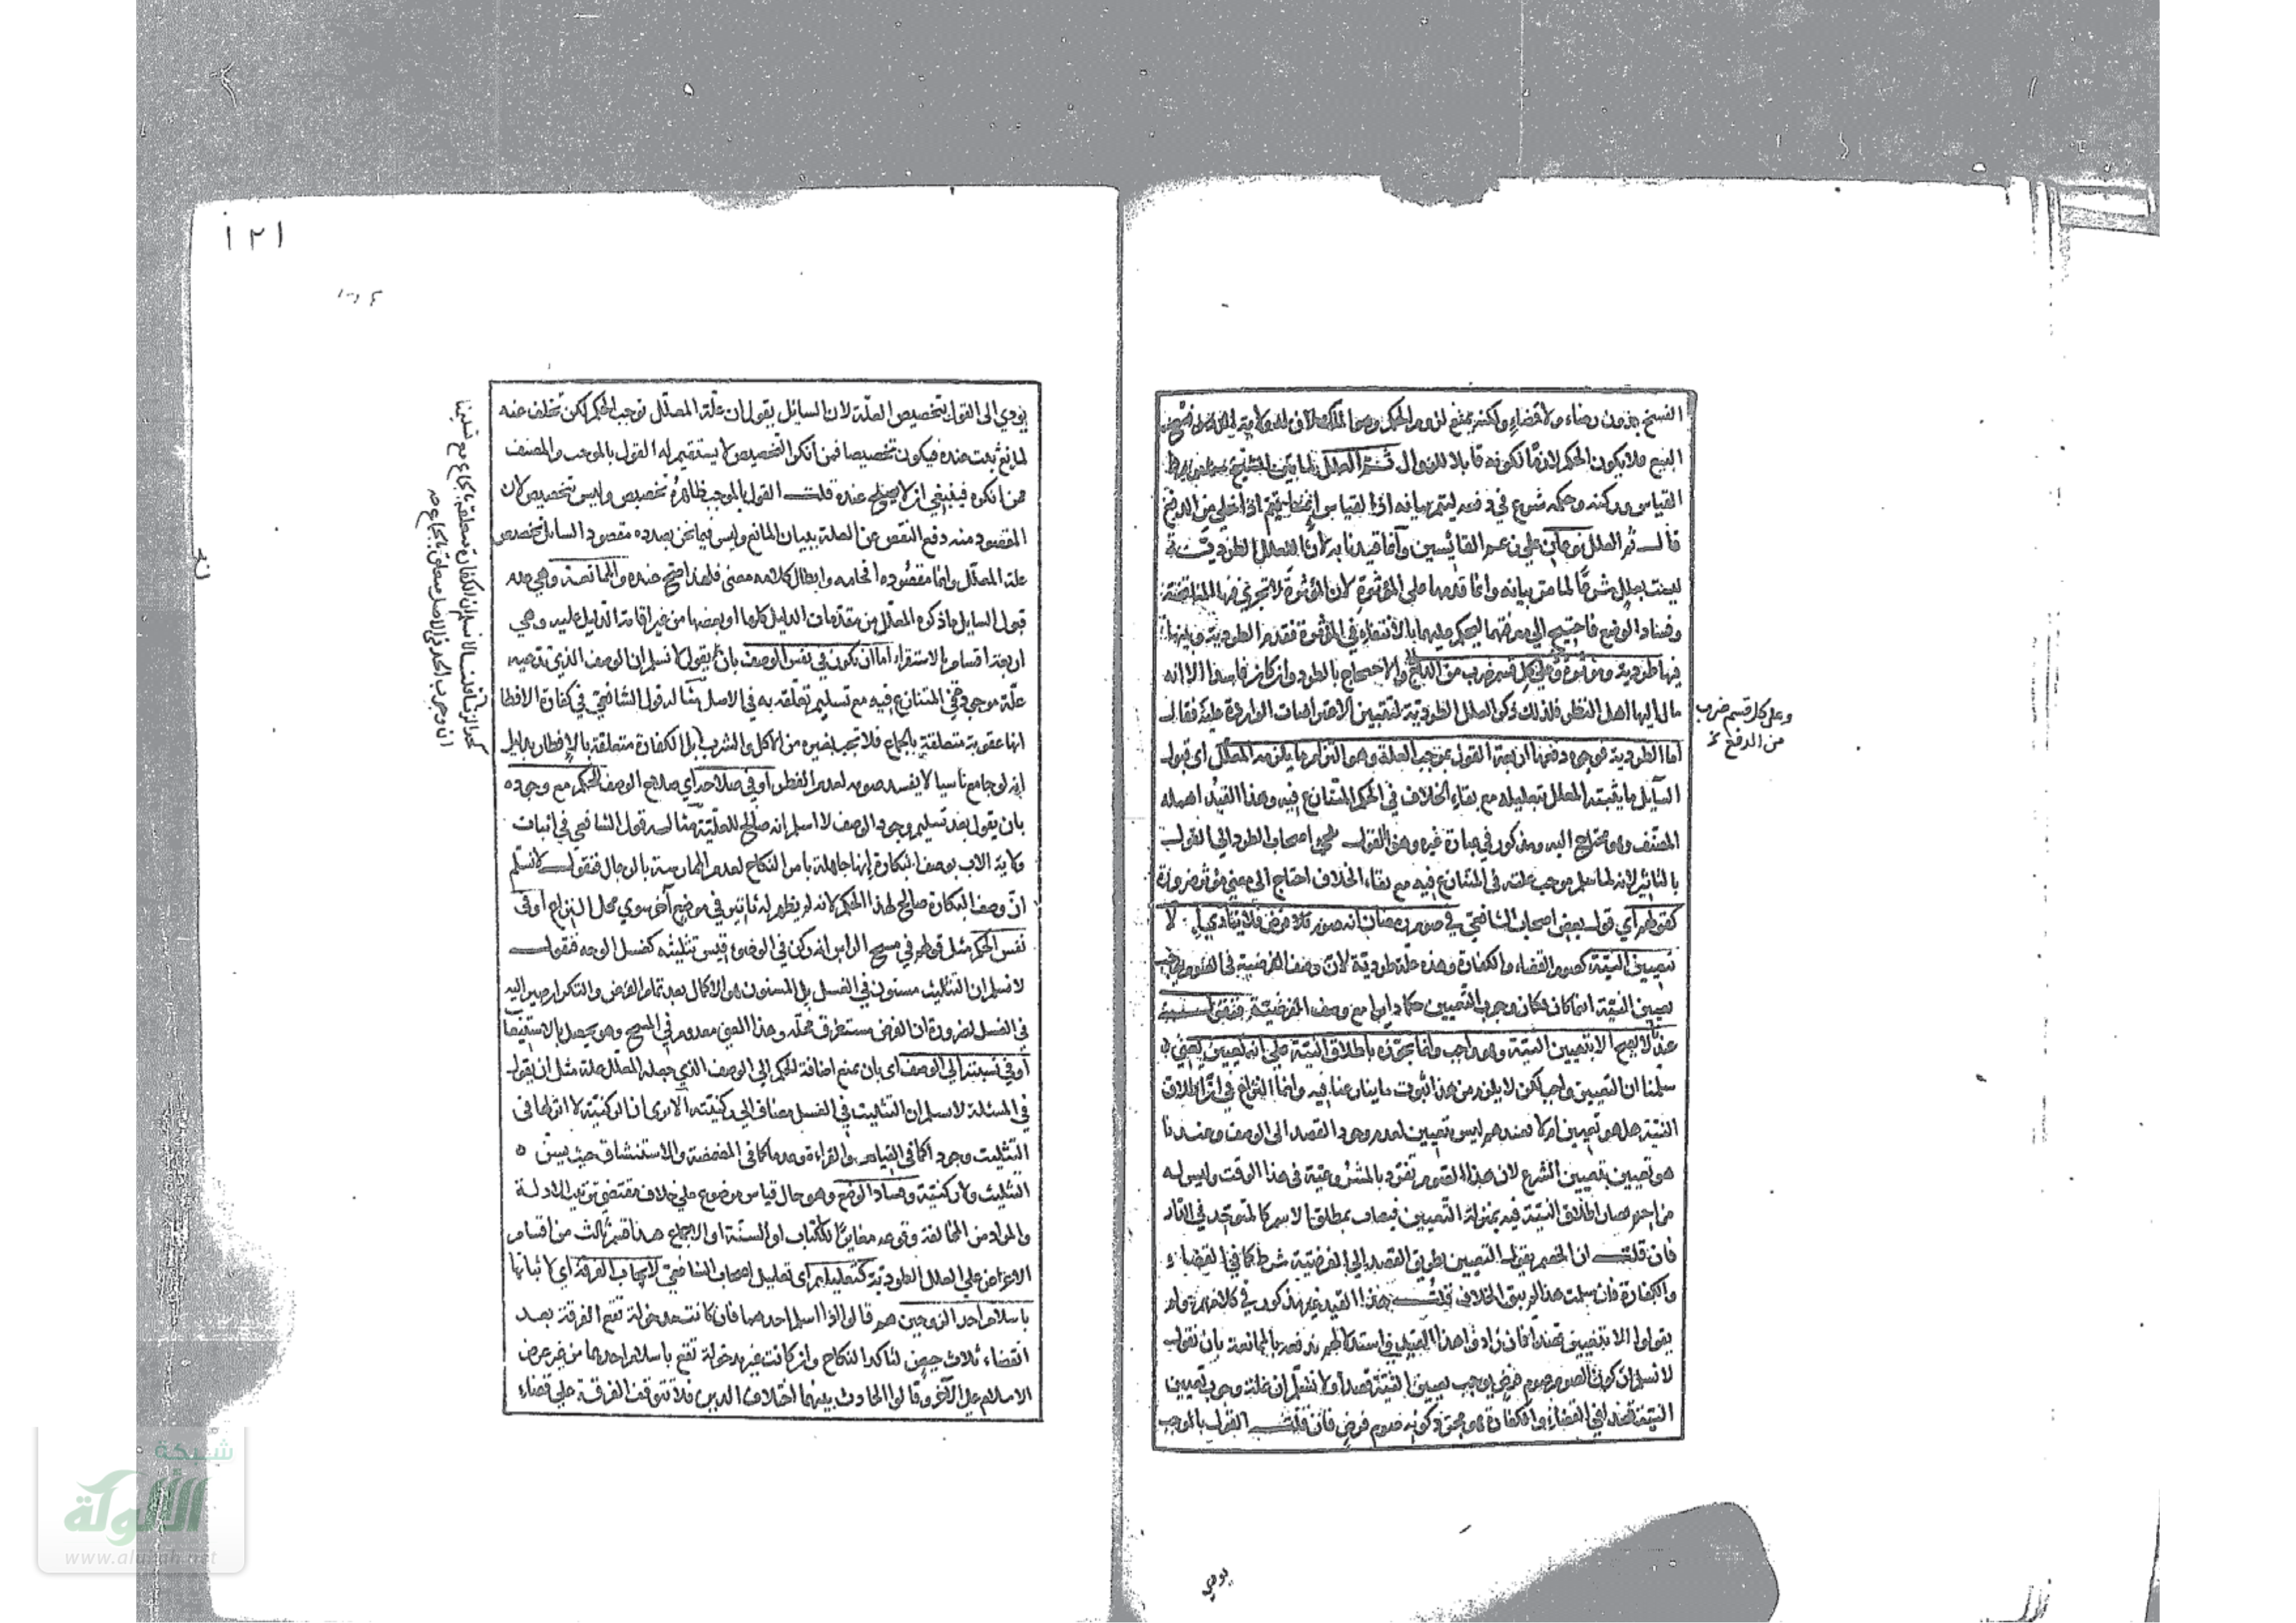 الفسخ بدون رضاء ولا قضاء ولكنه يمتنع لزوم الحكم وهو الملك
البيع فلا يكون الحكم لازما لكونه قابلا للزوال ثم العلل لما بين الشيخ
القياس وركنه وحكمه شرع في دفعه ليتم بيانه اذ القياس انما يتم اذا خلي عن الدفع
قال ثم العلل نوعان على زعم القائسين وانما قيدنا به لان العلل الطردية
ليست بعلل شرعا لما مر بيانه وانما قدمها على المؤثرة لان المؤثرة لا تجري فيها المناقضة
وفساد الوضع فاحتيج الى معرفتهما ليحكم عليهما بالانتفاء في المؤثرة فقدم الطردية
فيها طردية ومؤثرة وعلى كل قسم ضرب من الدفع والاحتجاج بالطرد وان كان فاسدا الا انه
مال اليها اهل النظر فلذلك ذكر العلل الطردية لتبيين الاعتراضات الواردة عليه فقال
اما الطردية فوجوه دفعها اربعة القول بموجب العلة وهو التزام ما يلزمه المعلل اي قبول
السائل ما يثبته المعلل بتعليله مع بقاء الخلاف في الحكم المتنازع فيه وهذا القيد اهمله
المصنف وهو محتاج اليه ومذكور في عبارة غيره وهذا القول يلجئ اصحاب الطرد الى القول
بالتاثير لانه لما سلم موجب علته في المتنازع فيه مع بقاء الخلاف احتاج الى معنى مؤثر ضرورة
كقولهم اي قول بعض اصحاب الشافعي في صوم رمضان انه صوم فرض فلا يتادى الا
بتعيين النية كصوم القضاء والكفارة وهذه علة طردية لان وصف الفرضية في الصوم يوجب
تعيين النية اينما كان فكان وجوب التعيين حكما دائرا مع وصف الفرضية فنقول
عندنا لا يصح الا بتعيين النية وهو واجب وانما نجوزه باطلاق النية على انه تعيين يعني
سلمنا ان التعيين واجب لكن لا يلزم من هذا ثبوت ما ينازعنا فيه وانما النزاع في ان اطلاق
النية هل هو تعيين ام لا فعندهم ليس بتعيين لعدم وجود القصد الى الوصف وعندنا
هو تعيين بتعيين الشرع لان هذا الصوم تفرد بالمشروعية في هذا الوقت وليس له
مزاحم فصار اطلاق النية فيه بمنزلة التعيين فيصاب بمطلق الاسم كالمتوحد في الدار
فان قلت ان الخصم يقول التعيين بطريق القصد الى الفرضية شرط كما في القضاء
والكفارة فان سلمت هذا لم يبق الخلاف قلت هذا القيد غير مذكور في كلامهم ولم
يقولوا الا بتعيين قصدا فان زادوا هذا القيد في استدلالهم ندفعه بالممانعة بان نقول
لا نسلم ان كون الصوم صوم فرض يوجب تعيين النية قصدا ولا نسلم ان علة وجوب تعيين
النية قصدا في القضاء والكفارة هو مجرد كونه صوم فرض فان قلت القول بالموجب
وعلى كل قسم ضرب
من الدفع
يودي
١٢١
يودي الى القول بتخصيص العلة لان السائل يقول ان علة المعلل توجب الحكم لكن تخلف عنه
لمانع ثبت عنده فيكون تخصيصا فمن انكر التخصيص لا يستقيم له القول بالموجب والمصنف
ممن انكره فينبغي ان لا يصح عنده قلت القول بالموجب ظاهره تخصيص وليس بتخصيص لان
المقصود منه دفع النقض عن العلة ببيان المانع وليس فيما نحن بصدده مقصود السائل تخصيص
علة المعلل وانما مقصوده افحامه وابطال كلامه معنى فلهذا صح عنده والممانعة وهي عدم
قبول السايل ما ذكره المعلل من مقدمات الدليل كلها او بعضها من غير اقامة الدليل عليه وهي
اربعة اقسام بالاستقراء اما ان يكون في نفس الوصف بان يقول لا نسلم ان الوصف الذي تدعيه
علة موجود في المتنازع فيه مع تسليم تعلقه به في الاصل مثاله قول الشافعي في كفارة الافطار
انها عقوبة متعلقة بالجماع فلا تجب بغيره من الاكل والشرب بل الكفارة متعلقة بالافطار بدليل
انه لو جامع ناسيا لا يفسد صومه لعدم الفطر او في صلاحه اي صلاح الوصف للحكم مع وجوده
بان يقول بعد تسليم وجود الوصف لا اسلم انه صالح للعلية مثاله قول الشافعي في اثبات
ولاية الاب بوصف البكارة انها جاهلة بامر النكاح لعدم الممارسة بالرجال فنقول لا نسلم
ان وصف البكارة صالح لهذا الحكم لانه لم يظهر له تاثير في موضع آخر سوى محل النزاع او في
نفس الحكم مثل قولهم في مسح الراس انه ركن في الوضوء فيسن تثليثه كغسل الوجه فنقول
لا نسلم ان التثليث مسنون في الغسل بل المسنون هو الاكمال بعد تمام الفرض والتكرار صير اليه
في الغسل لضرورة ان الفرض مستغرق محله وهذا المعنى معدوم في المسح وهو يحصل بالاستيعاب
او في نسبته الى الوصف اي بان يمنع اضافة الحكم الى الوصف الذي جعله المعلل علة مثل ان يقول
في المسئلة لا نسلم ان التثليث في الغسل مضاف الى ركنيته الا ترى ان الركنية لا اثر لها في
التثليث وجودا كما في القيام والقراءة وعدما كما في المضمضة والاستنشاق حيث يسن
التثليث ولا ركنية وفساد الوضع وهو حال قياس موضوع على خلاف مقتضى ترتيب الادلة
والمراد من المخالفة وقوعه مغايرا للكتاب او السنة او الاجماع هذا قسم ثالث من اقسام
الاعتراض على العلل الطردية كتعليلهم اي تعليل اصحاب الشافعي لايجاب الفرقة اي لاثباتها
باسلام احد الزوجين هم قالوا اذا اسلم احدهما فان كانت مدخولة تقع الفرقة بعد
انقضاء ثلاث حيض لتاكد النكاح وان كانت غير مدخولة تقع باسلام احدهما من غير عرض
الاسلام على الآخر وقالوا الحادث بينهما اختلاف الدين فلا تتوقف الفرقة على قضاء
شبكة
الألوكة
www.alukah.net